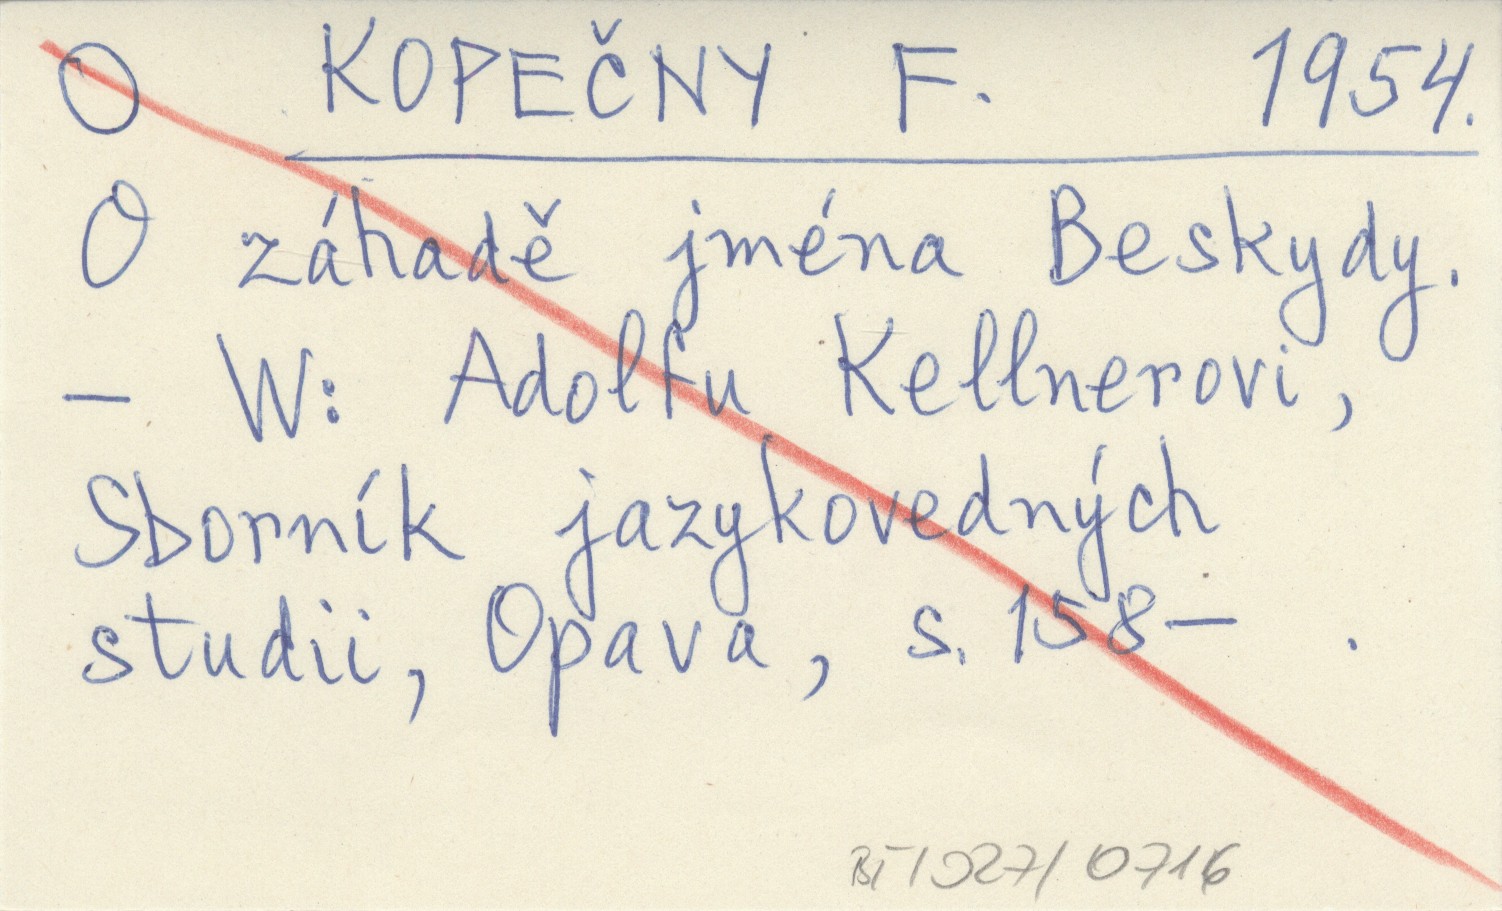 O KOPEČNY F. 1954.
O záhadě jména Beskydy.
– W: Adolfu Kellnerovi,
Sborník jazykovedných
studii, Opava, s. 158– .
0716